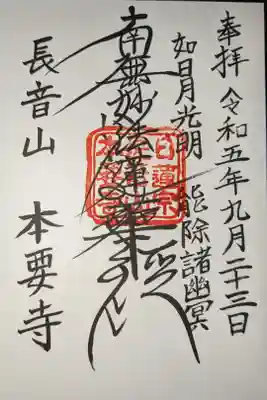 奉拝 令和五年九月二十三日
如日月光明 能除諸幽冥
南無妙法蓮華経
長音山 本要寺
日蓮宗